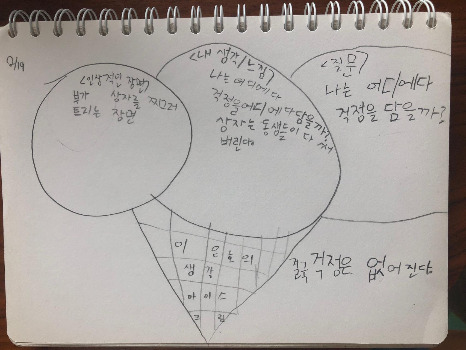 2/19
<인상적인 장면>
부가 상자를 찌그러
트리는 장면
<내 생각/느낌>
나는 어디에다
걱정을어디에다담을까?
상자는 동생들이 다
버린다.
<질문>
나는 어디에다
걱정을 담을까?
이 은
생각
아이스
크림
걱정은 없어진다